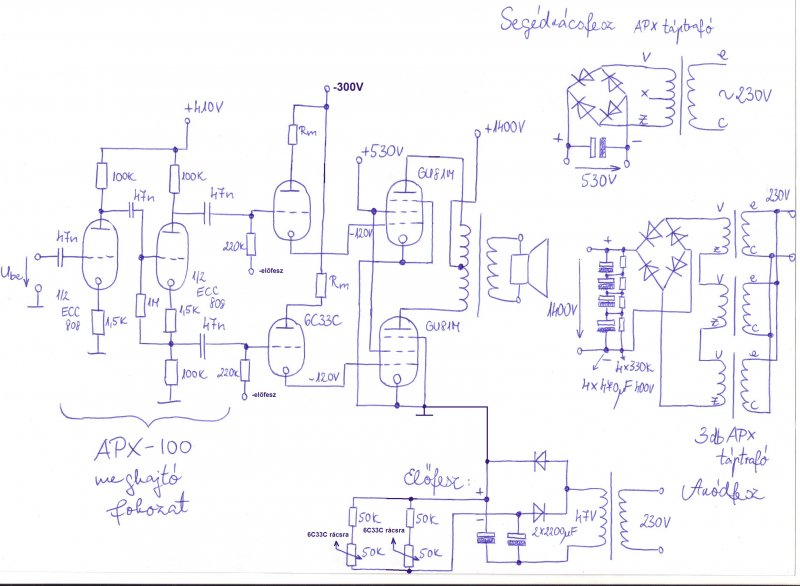 Segédrácsfesz APX táptrafó
V e
x
z c
~230V
+ -
530V
-300V
+410V
Rm
+530V
+1400V
GU81M
100K
47n
100K
47n
47n
220K
-előfesz
-120V
Ube
1/2
ECC
808
1,5K
1M
1/2
ECC
808
1,5K
47n
100K
220K
-előfesz
6C33C
Rm
-120V
GU81M
230V
V e
z c
V e
z c
V e
z c
+
-
1400V
4x330K
4x470µF 400V
3db APX
táptrafó
Anódfesz
APX-100
meghajtó
fokozat
Előfesz:
+
-
50K
50K
6C33C rácsra
50K
6C33C rácsra
50K
2x2200µF
47V
230V